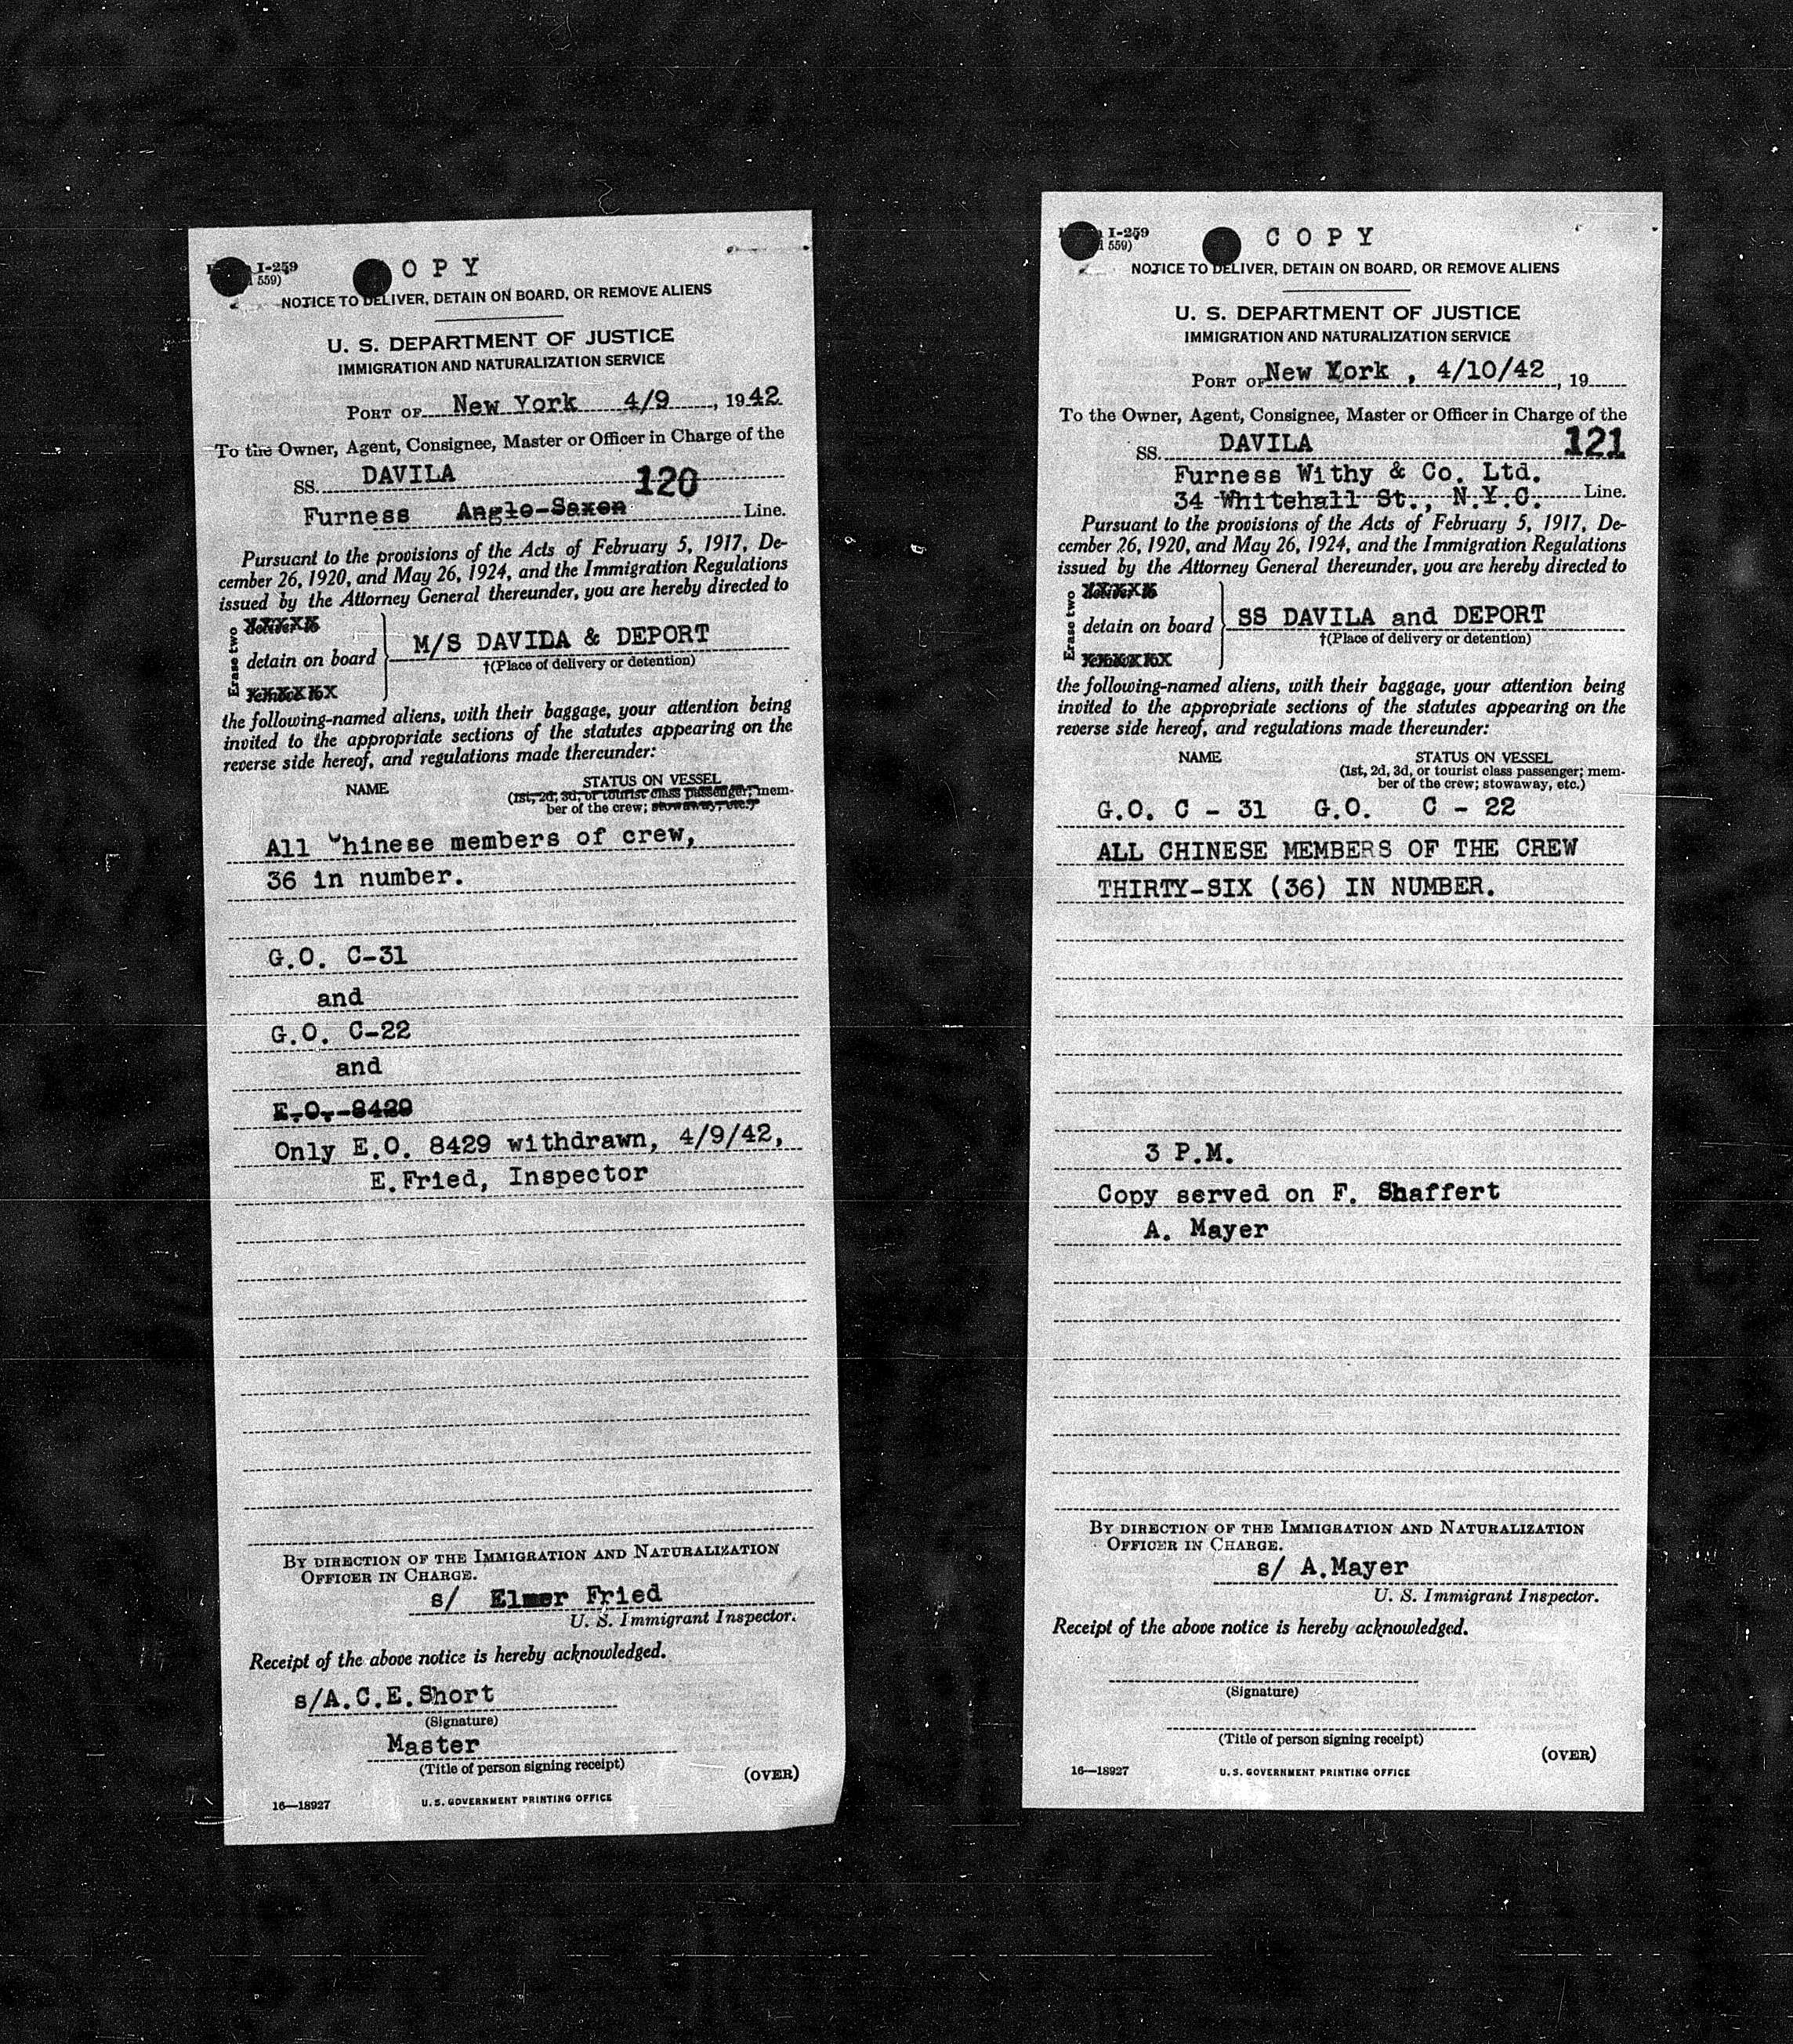 I-259
559)
OPY
NOTICE TO DELIVER, DETAIN ON BOARD, OR REMOVE ALIENS
U. S. DEPARTMENT OF JUSTICE
IMMIGRATION AND NATURALIZATION SERVICE
PORT OF New York 4/9, 1942
To the Owner, Agent, Consignee, Master or Officer in Charge of the
SS. DAVILA 120
Furness Anglo-Saxon Line.
Pursuant to the provisions of the Acts of February 5, 1917, De-
cember 26, 1920, and May 26, 1924, and the Immigration Regulations
issued by the Attorney General thereunder, you are hereby directed to
Erase two
deliver to
detain on board
remove to
M/S DAVIDA & DEPORT
†(Place of delivery or detention)
the following-named aliens, with their baggage, your attention being
invited to the appropriate sections of the statutes appearing on the
reverse side hereof, and regulations made thereunder:
NAME
STATUS ON VESSEL
(1st, 2d, 3d, or tourist class passenger; mem-
ber of the crew; stowaway, etc.)
All Chinese members of crew,
36 in number.
G.O. C-31
and
G.O. C-22
and
E.O. 8429
Only E.O. 8429 withdrawn, 4/9/42,
E.Fried, Inspector
BY DIRECTION OF THE IMMIGRATION AND NATURALIZATION
OFFICER IN CHARGE.
s/ Elmer Fried
U. S. Immigrant Inspector.
Receipt of the above notice is hereby acknowledged.
s/A.C.E.Short
(Signature)
Master
(Title of person signing receipt)
(OVER)
16—18927
U. S. GOVERNMENT PRINTING OFFICE
I-259
559)
COPY
NOTICE TO DELIVER, DETAIN ON BOARD, OR REMOVE ALIENS
U. S. DEPARTMENT OF JUSTICE
IMMIGRATION AND NATURALIZATION SERVICE
PORT OF New York , 4/10/42, 19
To the Owner, Agent, Consignee, Master or Officer in Charge of the
SS. DAVILA 121
Furness Withy & Co. Ltd.
34 Whitehall St., N.Y.C. Line.
Pursuant to the provisions of the Acts of February 5, 1917, De-
cember 26, 1920, and May 26, 1924, and the Immigration Regulations
issued by the Attorney General thereunder, you are hereby directed to
Erase two
deliver to
detain on board
remove to
SS DAVILA and DEPORT
†(Place of delivery or detention)
the following-named aliens, with their baggage, your attention being
invited to the appropriate sections of the statutes appearing on the
reverse side hereof, and regulations made thereunder:
NAME
STATUS ON VESSEL
(1st, 2d, 3d, or tourist class passenger; mem-
ber of the crew; stowaway, etc.)
G.O. C - 31 G.O. C - 22
ALL CHINESE MEMBERS OF THE CREW
THIRTY-SIX (36) IN NUMBER.
3 P.M.
Copy served on F. Shaffert
A. Mayer
BY DIRECTION OF THE IMMIGRATION AND NATURALIZATION
OFFICER IN CHARGE.
s/ A.Mayer
U. S. Immigrant Inspector.
Receipt of the above notice is hereby acknowledged.
(Signature)
(Title of person signing receipt)
(OVER)
16—18927
U. S. GOVERNMENT PRINTING OFFICE